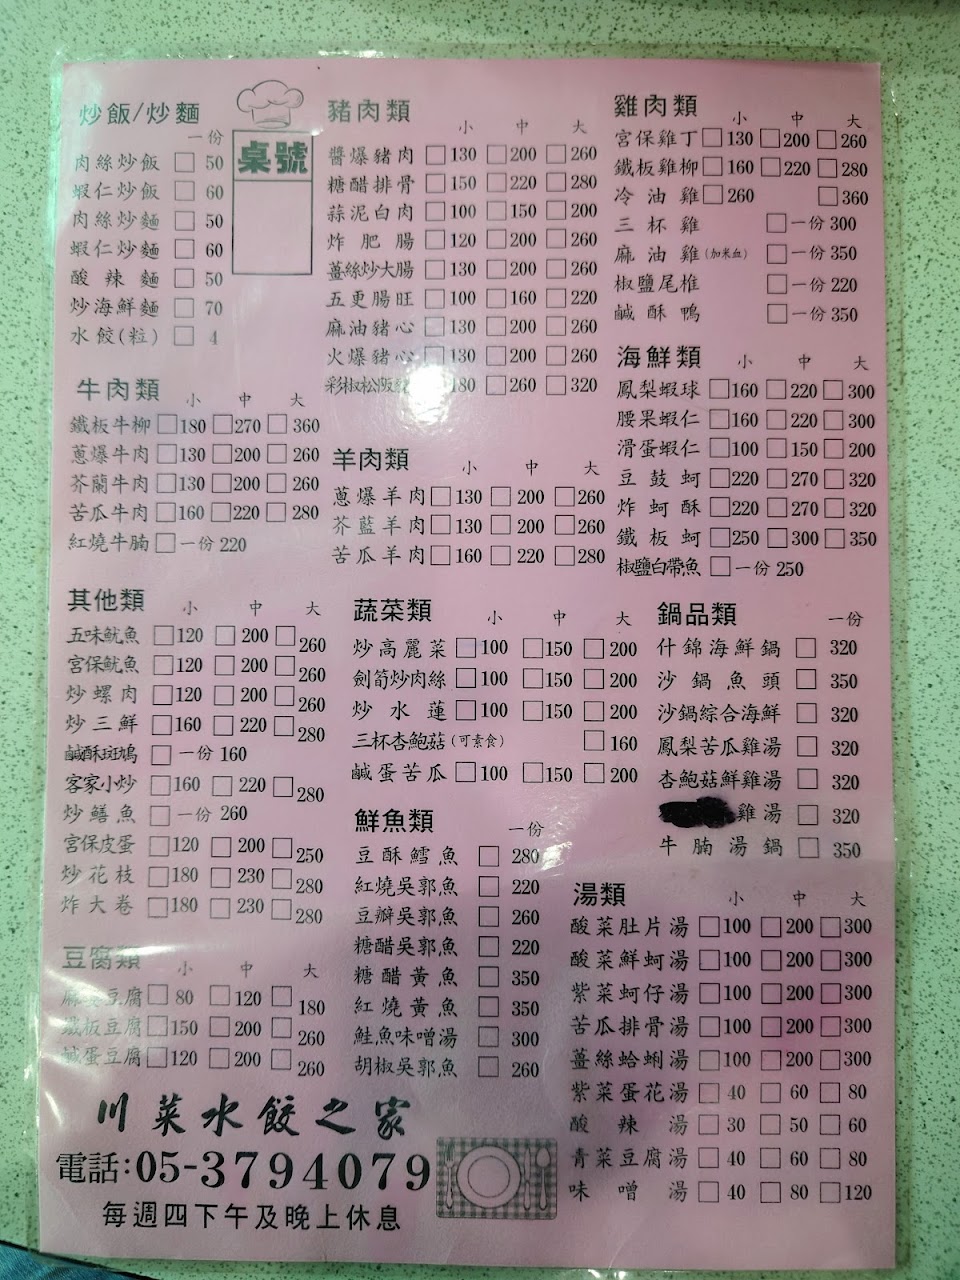 炒飯/炒麵
一份
肉絲炒飯 □ 50
蝦仁炒飯 □ 60
肉絲炒麵 □ 50
蝦仁炒麵 □ 60
酸辣麵 □ 50
炒海鮮麵 □ 70
水餃(粒) □ 4
桌號
牛肉類
小 中 大
鐵板牛柳 □180 □270 □360
蔥爆牛肉 □130 □200 □260
芥蘭牛肉 □130 □200 □260
苦瓜牛肉 □160 □220 □280
紅燒牛腩 □一份 220
豬肉類
小 中 大
醬爆豬肉 □130 □200 □260
糖醋排骨 □150 □220 □280
蒜泥白肉 □100 □150 □200
炸肥腸 □120 □200 □260
薑絲炒大腸 □130 □200 □260
五更腸旺 □100 □160 □220
麻油豬心 □130 □200 □260
火爆豬心 □130 □200 □260
彩椒松阪 180 □260 □320
羊肉類
小 中 大
蔥爆羊肉 □130 □200 □260
芥藍羊肉 □130 □200 □260
苦瓜羊肉 □160 □220 □280
雞肉類
小 中 大
宮保雞丁 □130 □200 □260
鐵板雞柳 □160 □220 □280
冷油雞 □260 □360
三杯雞 □一份 300
麻油雞(加米血) □一份 350
椒鹽尾椎 □一份 220
鹹酥鴨 □一份 350
海鮮類
小 中 大
鳳梨蝦球 □160 □220 □300
腰果蝦仁 □160 □220 □300
滑蛋蝦仁 □100 □150 □200
豆鼓蚵 □220 □270 □320
炸蚵酥 □220 □270 □320
鐵板蚵 □250 □300 □350
椒鹽白帶魚 □一份 250
其他類
小 中 大
五味魷魚 □120 □200 □260
宮保魷魚 □120 □200 □260
炒螺肉 □120 □200 □260
炒三鮮 □160 □220 □280
鹹酥斑鳩 □一份 160
客家小炒 □160 □220 □280
炒鱔魚 □一份 260
宮保皮蛋 □120 □200 □250
炒花枝 □180 □230 □280
炸大卷 □180 □230 □280
豆腐類
小 中 大
麻婆豆腐 □80 □120 □180
鐵板豆腐 □150 □200 □260
鹹蛋豆腐 □120 □200 □260
蔬菜類
小 中 大
炒高麗菜 □100 □150 □200
劍筍炒肉絲 □100 □150 □200
炒水蓮 □100 □150 □200
三杯杏鮑菇(可素食) □160
鹹蛋苦瓜 □100 □150 □200
鮮魚類
一份
豆酥鱈魚 □ 280
紅燒吳郭魚 □ 220
豆瓣吳郭魚 □ 260
糖醋吳郭魚 □ 220
糖醋黃魚 □ 350
紅燒黃魚 □ 350
鮭魚味噌湯 □ 300
胡椒吳郭魚 □ 260
鍋品類
一份
什錦海鮮鍋 □ 320
沙鍋魚頭 □ 350
沙鍋綜合海鮮 □ 320
鳳梨苦瓜雞湯 □ 320
杏鮑菇鮮雞湯 □ 320
雞湯 □ 320
牛腩湯鍋 □ 350
湯類
小 中 大
酸菜肚片湯 □100 □200 □300
酸菜鮮蚵湯 □100 □200 □300
紫菜蚵仔湯 □100 □200 □300
苦瓜排骨湯 □100 □200 □300
薑絲蛤蜊湯 □100 □200 □300
紫菜蛋花湯 □ 40 □ 60 □ 80
酸辣湯 □ 30 □ 50 □ 60
青菜豆腐湯 □ 40 □ 60 □ 80
味噌湯 □ 40 □ 80 □120
川菜水餃之家
電話:05-3794079
每週四下午及晚上休息